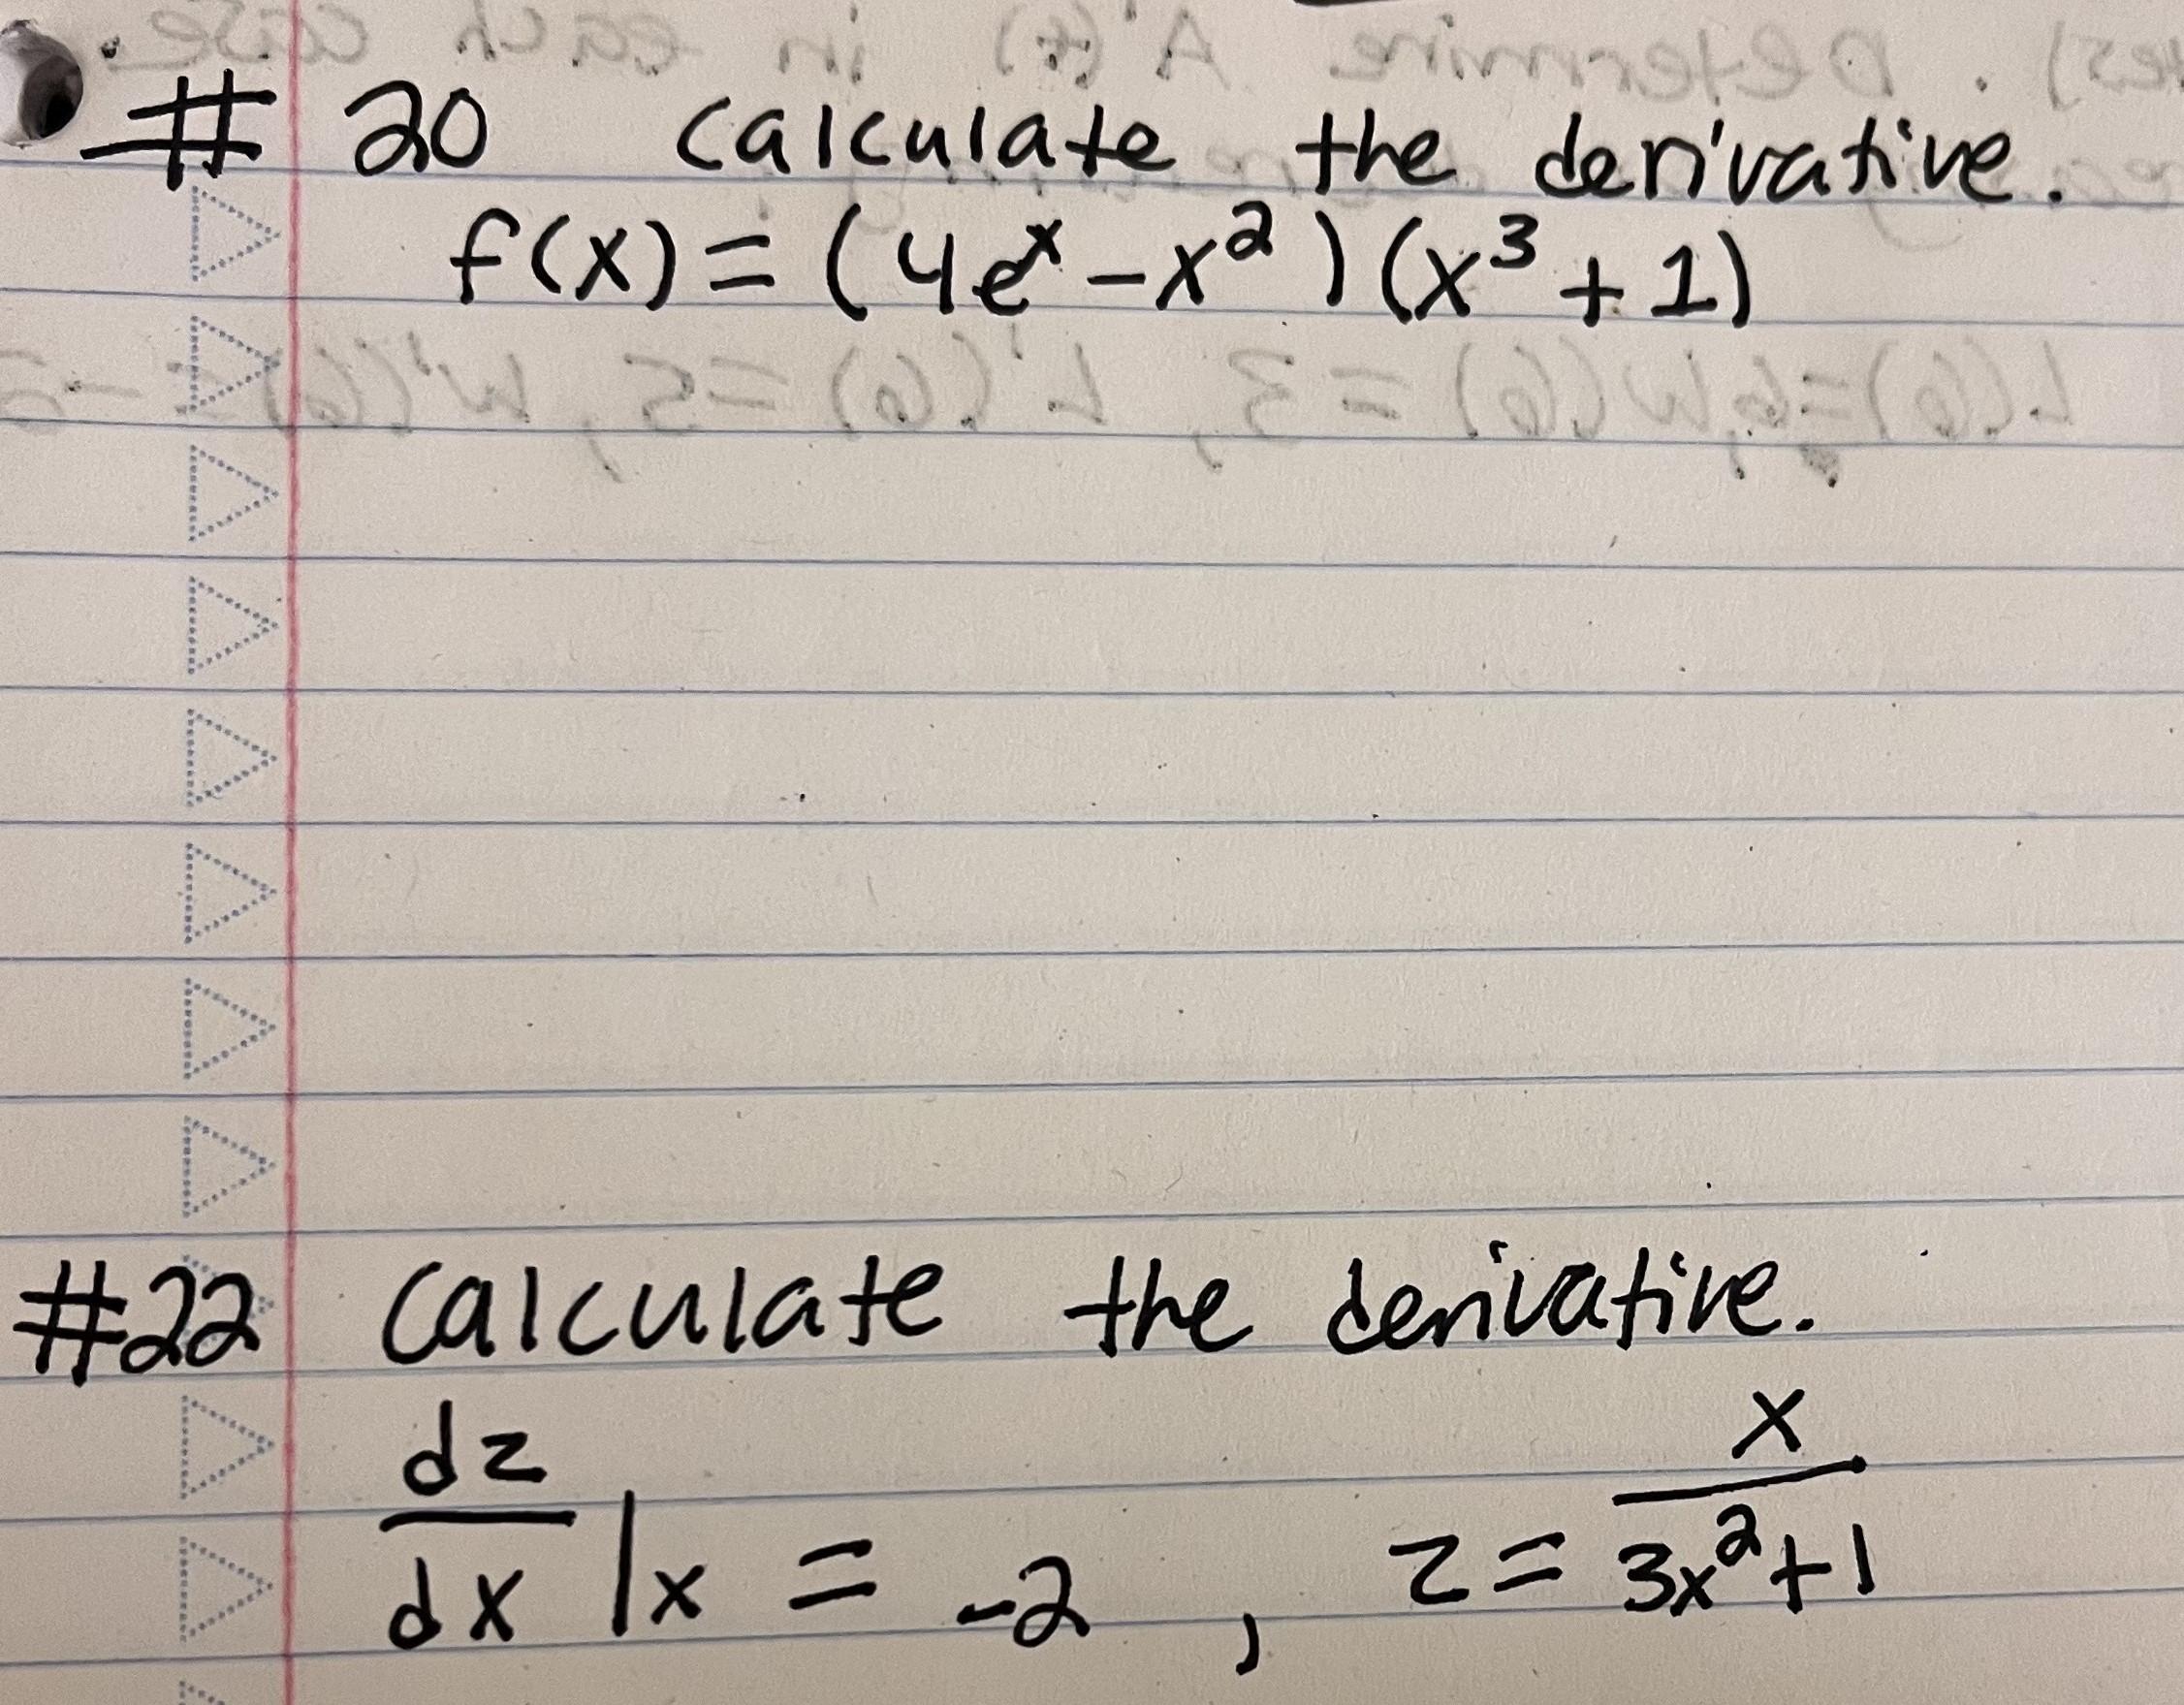 # 20 calculate the derivative.
f(x) = (4eˣ - x²)(x³ + 1)
#22 Calculate the derivative.
dz/dx |x = -2 , z = x/(3x²+1)